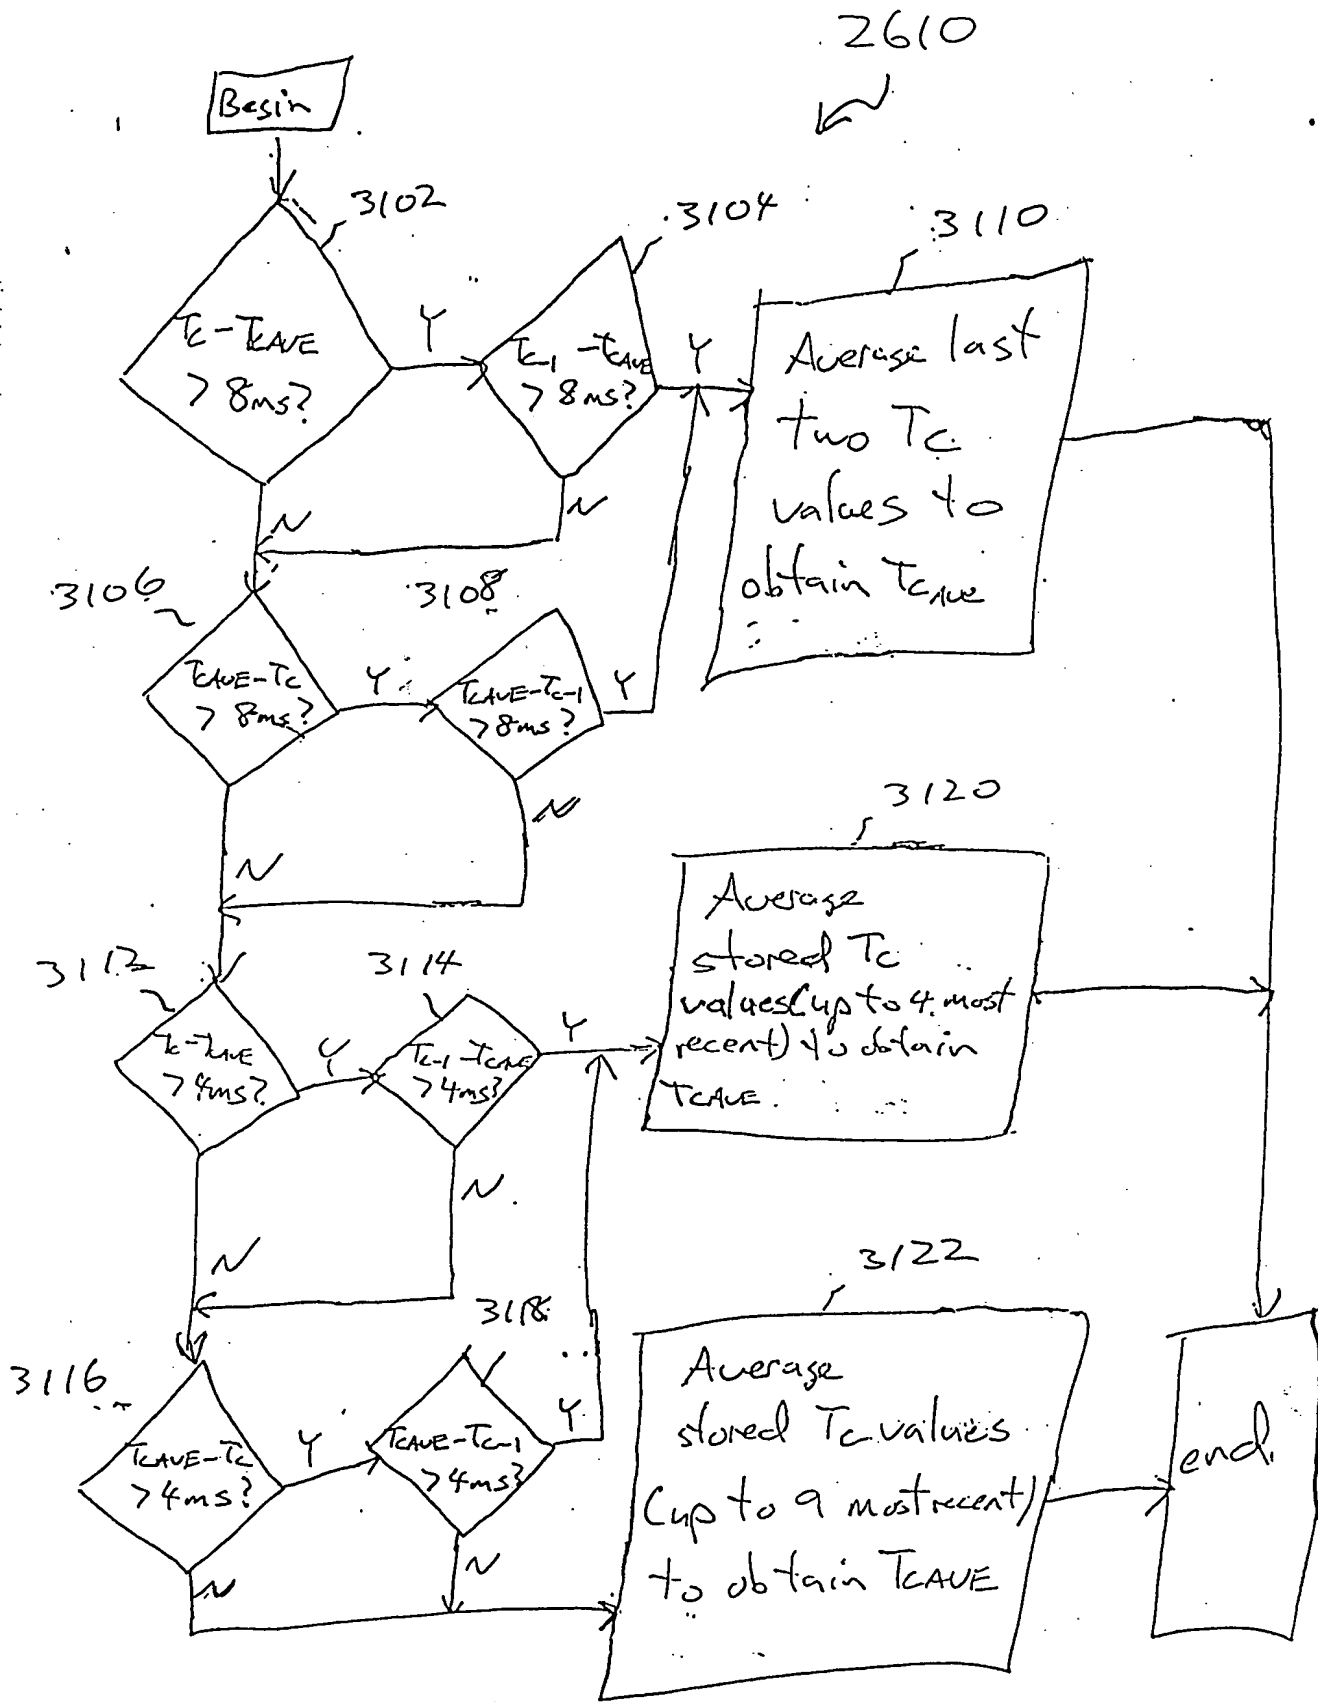 2610
Begin
3102
3104
3110
TC-TCAVE
> 8ms?
Y
TC-1 -TCAVE
> 8ms?
Y
Average last
two TC
values to
obtain TCAVE
N
N
3106
3108
TCAVE-TC
> 8ms?
Y
TCAVE-TC-1
> 8ms?
Y
N
N
3120
Average
stored TC
values (up to 4 most
recent) to obtain
TCAVE
3112
3114
TC-TCAVE
> 4ms?
Y
TC-1 -TCAVE
> 4ms?
Y
N
N
3122
3118
3116
TCAVE-TC
> 4ms?
Y
TCAVE-TC-1
> 4ms?
Y
Average
stored TC values
(up to 9 most recent)
to obtain TCAVE
end.
N
N